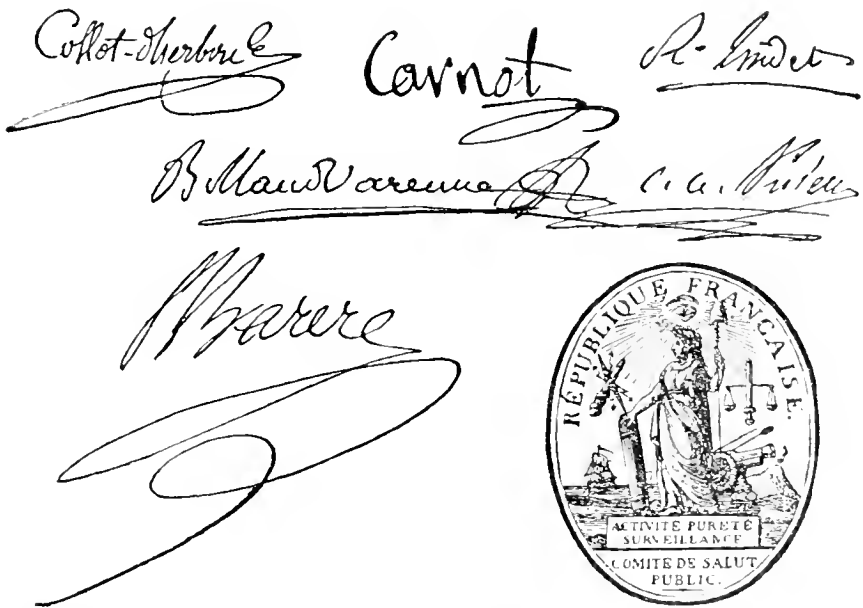 Collot-dherbois Carnot R. Lindet
Billaud Varenne C. A. Prieur
B Barere
RÉPUBLIQUE FRANÇAISE.
ACTIVITÉ PURETÉ
SURVEILLANCE
COMITE DE SALUT
PUBLIC.